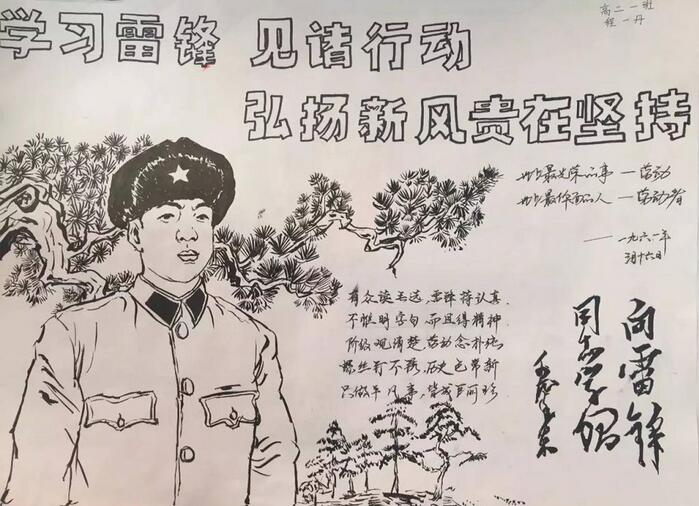 高二一班
程一丹
学习雷锋 见诸行动
弘扬新风贵在坚持
世上最光荣的事——劳动
世上最体面的人——劳动者
——一九六一年
三月十六日
有众读毛选，雷锋特认真，
不惟明字句，而且得精神，
阶级观清楚，劳动念朴纯，
螺丝钉不锈，历史色常新，
只做平凡事，皆成巨丽珍
向雷锋
同志学习
毛泽东